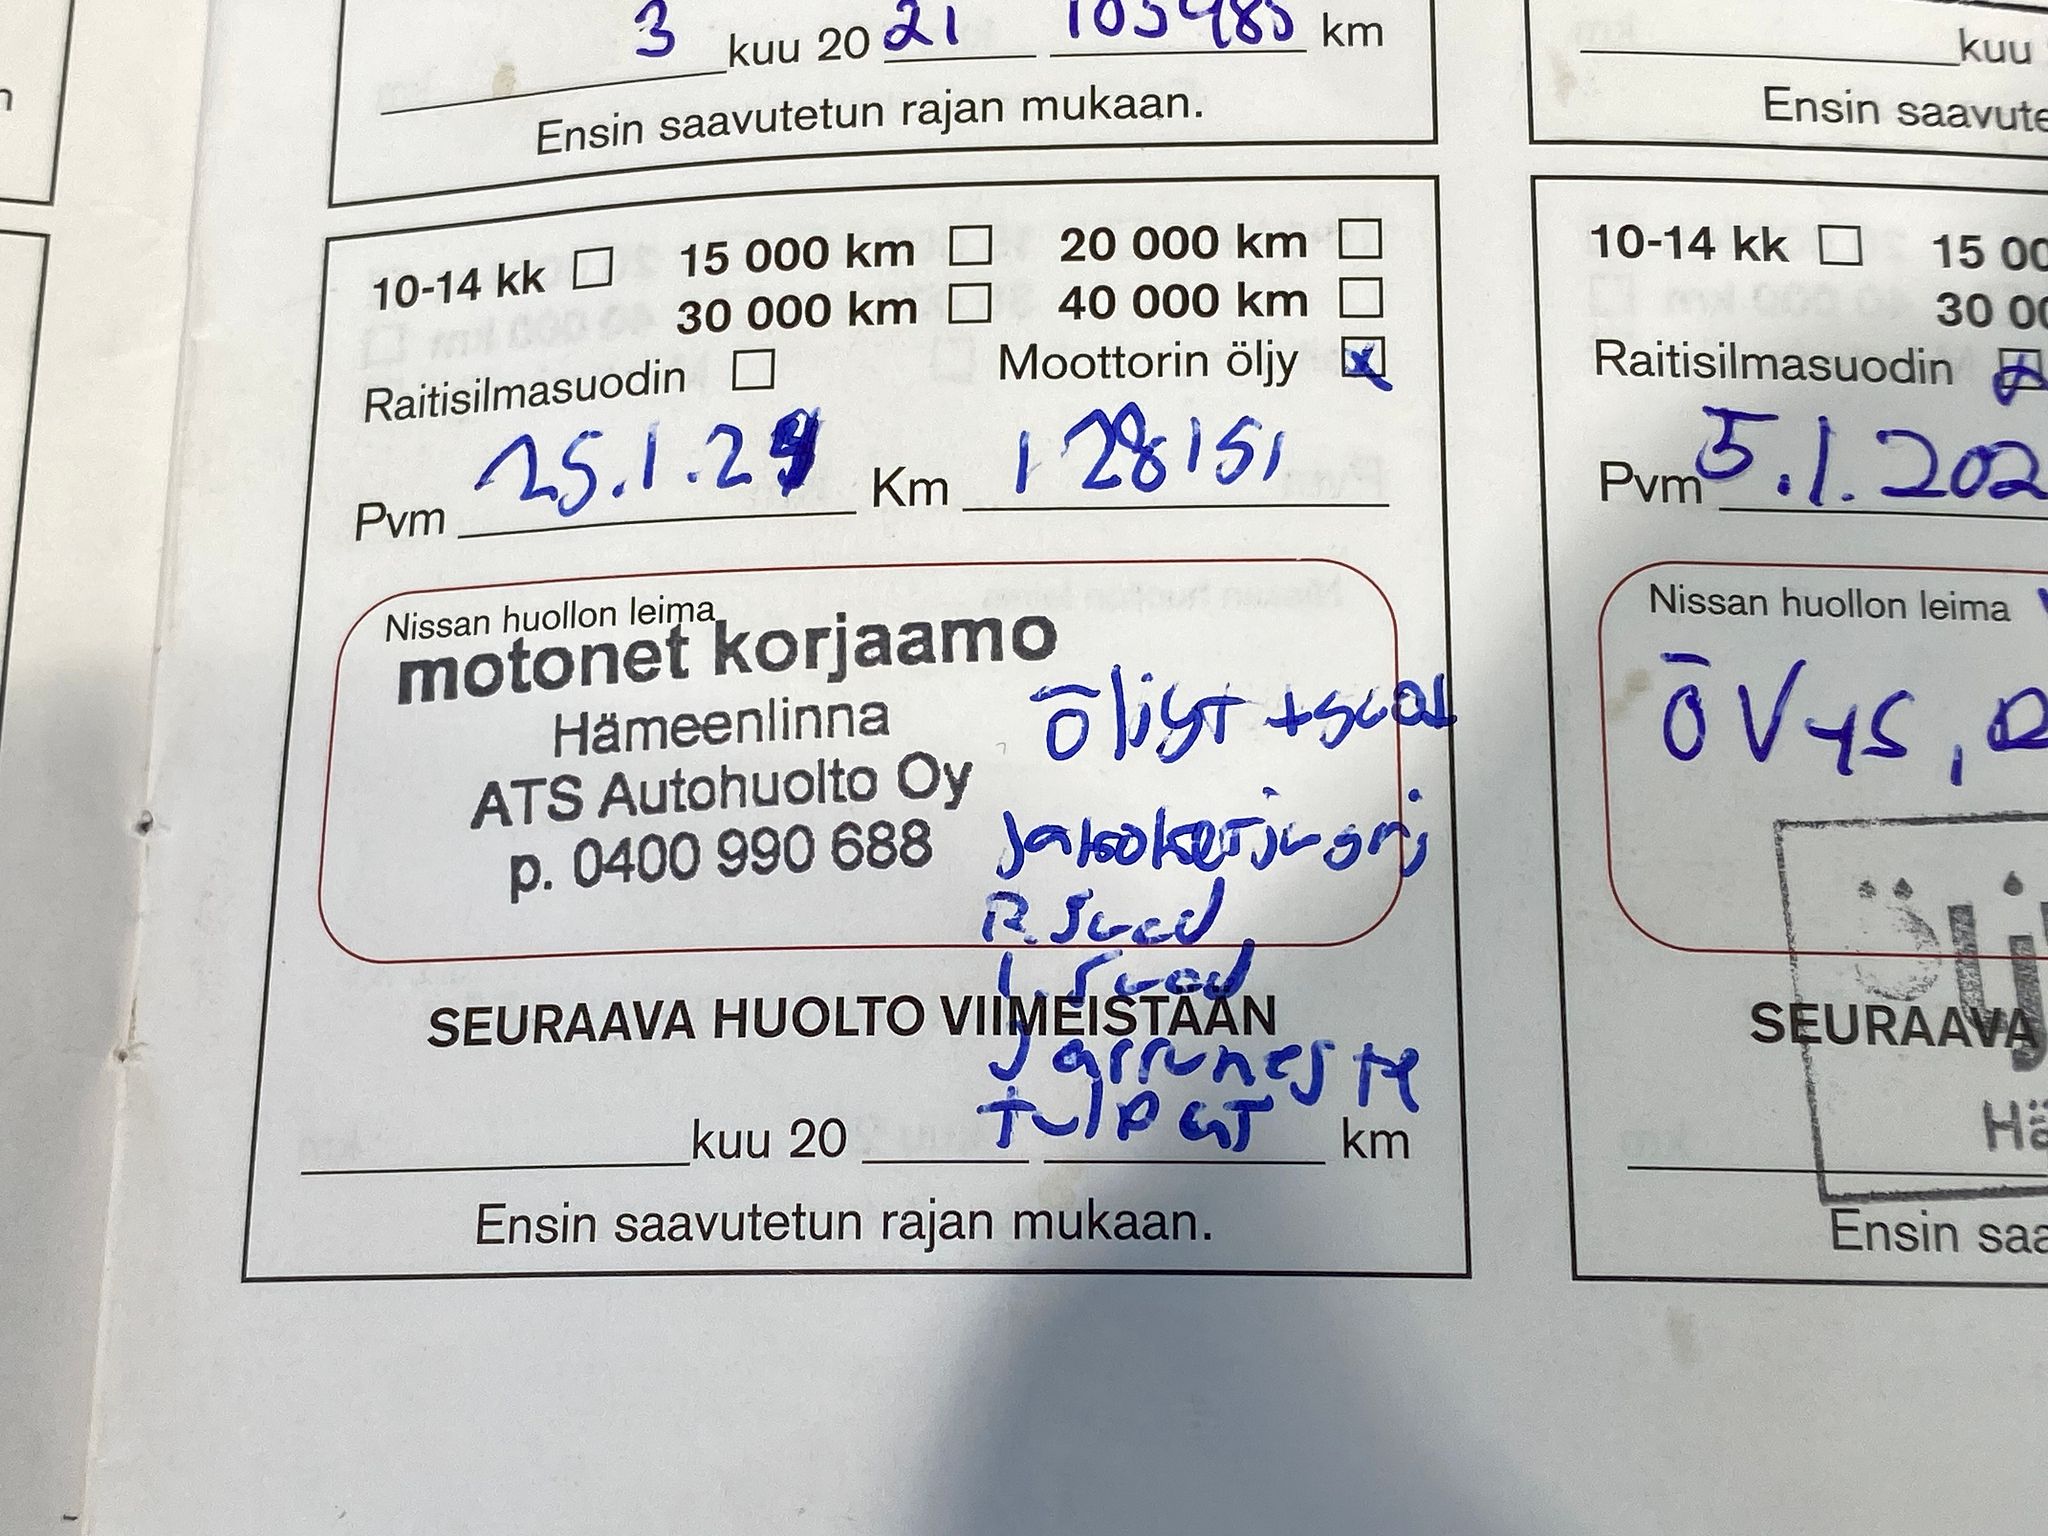 3 kuu 20 21 105985 km
Ensin saavutetun rajan mukaan.
10-14 kk 15 000 km 20 000 km
30 000 km 40 000 km
Raitisilmasuodin Moottorin öljy x
Pvm 25.1.24 Km 128151
Nissan huollon leima
motonet korjaamo
Hämeenlinna
ATS Autohuolto Oy
p. 0400 990 688
öljyt + suod
jakoketju
R. Suod
I. Suod
SEURAAVA HUOLTO VIIMEISTÄÄN
Jarruneste
tulpat
kuu 20 km
Ensin saavutetun rajan mukaan.
kuu
Ensin saavute
10-14 kk 15 00
30 00
Raitisilmasuodin
Pvm 5.1.202
Nissan huollon leima
ÖVYS,
Ölj
SEURAAVA
Hä
Ensin saa